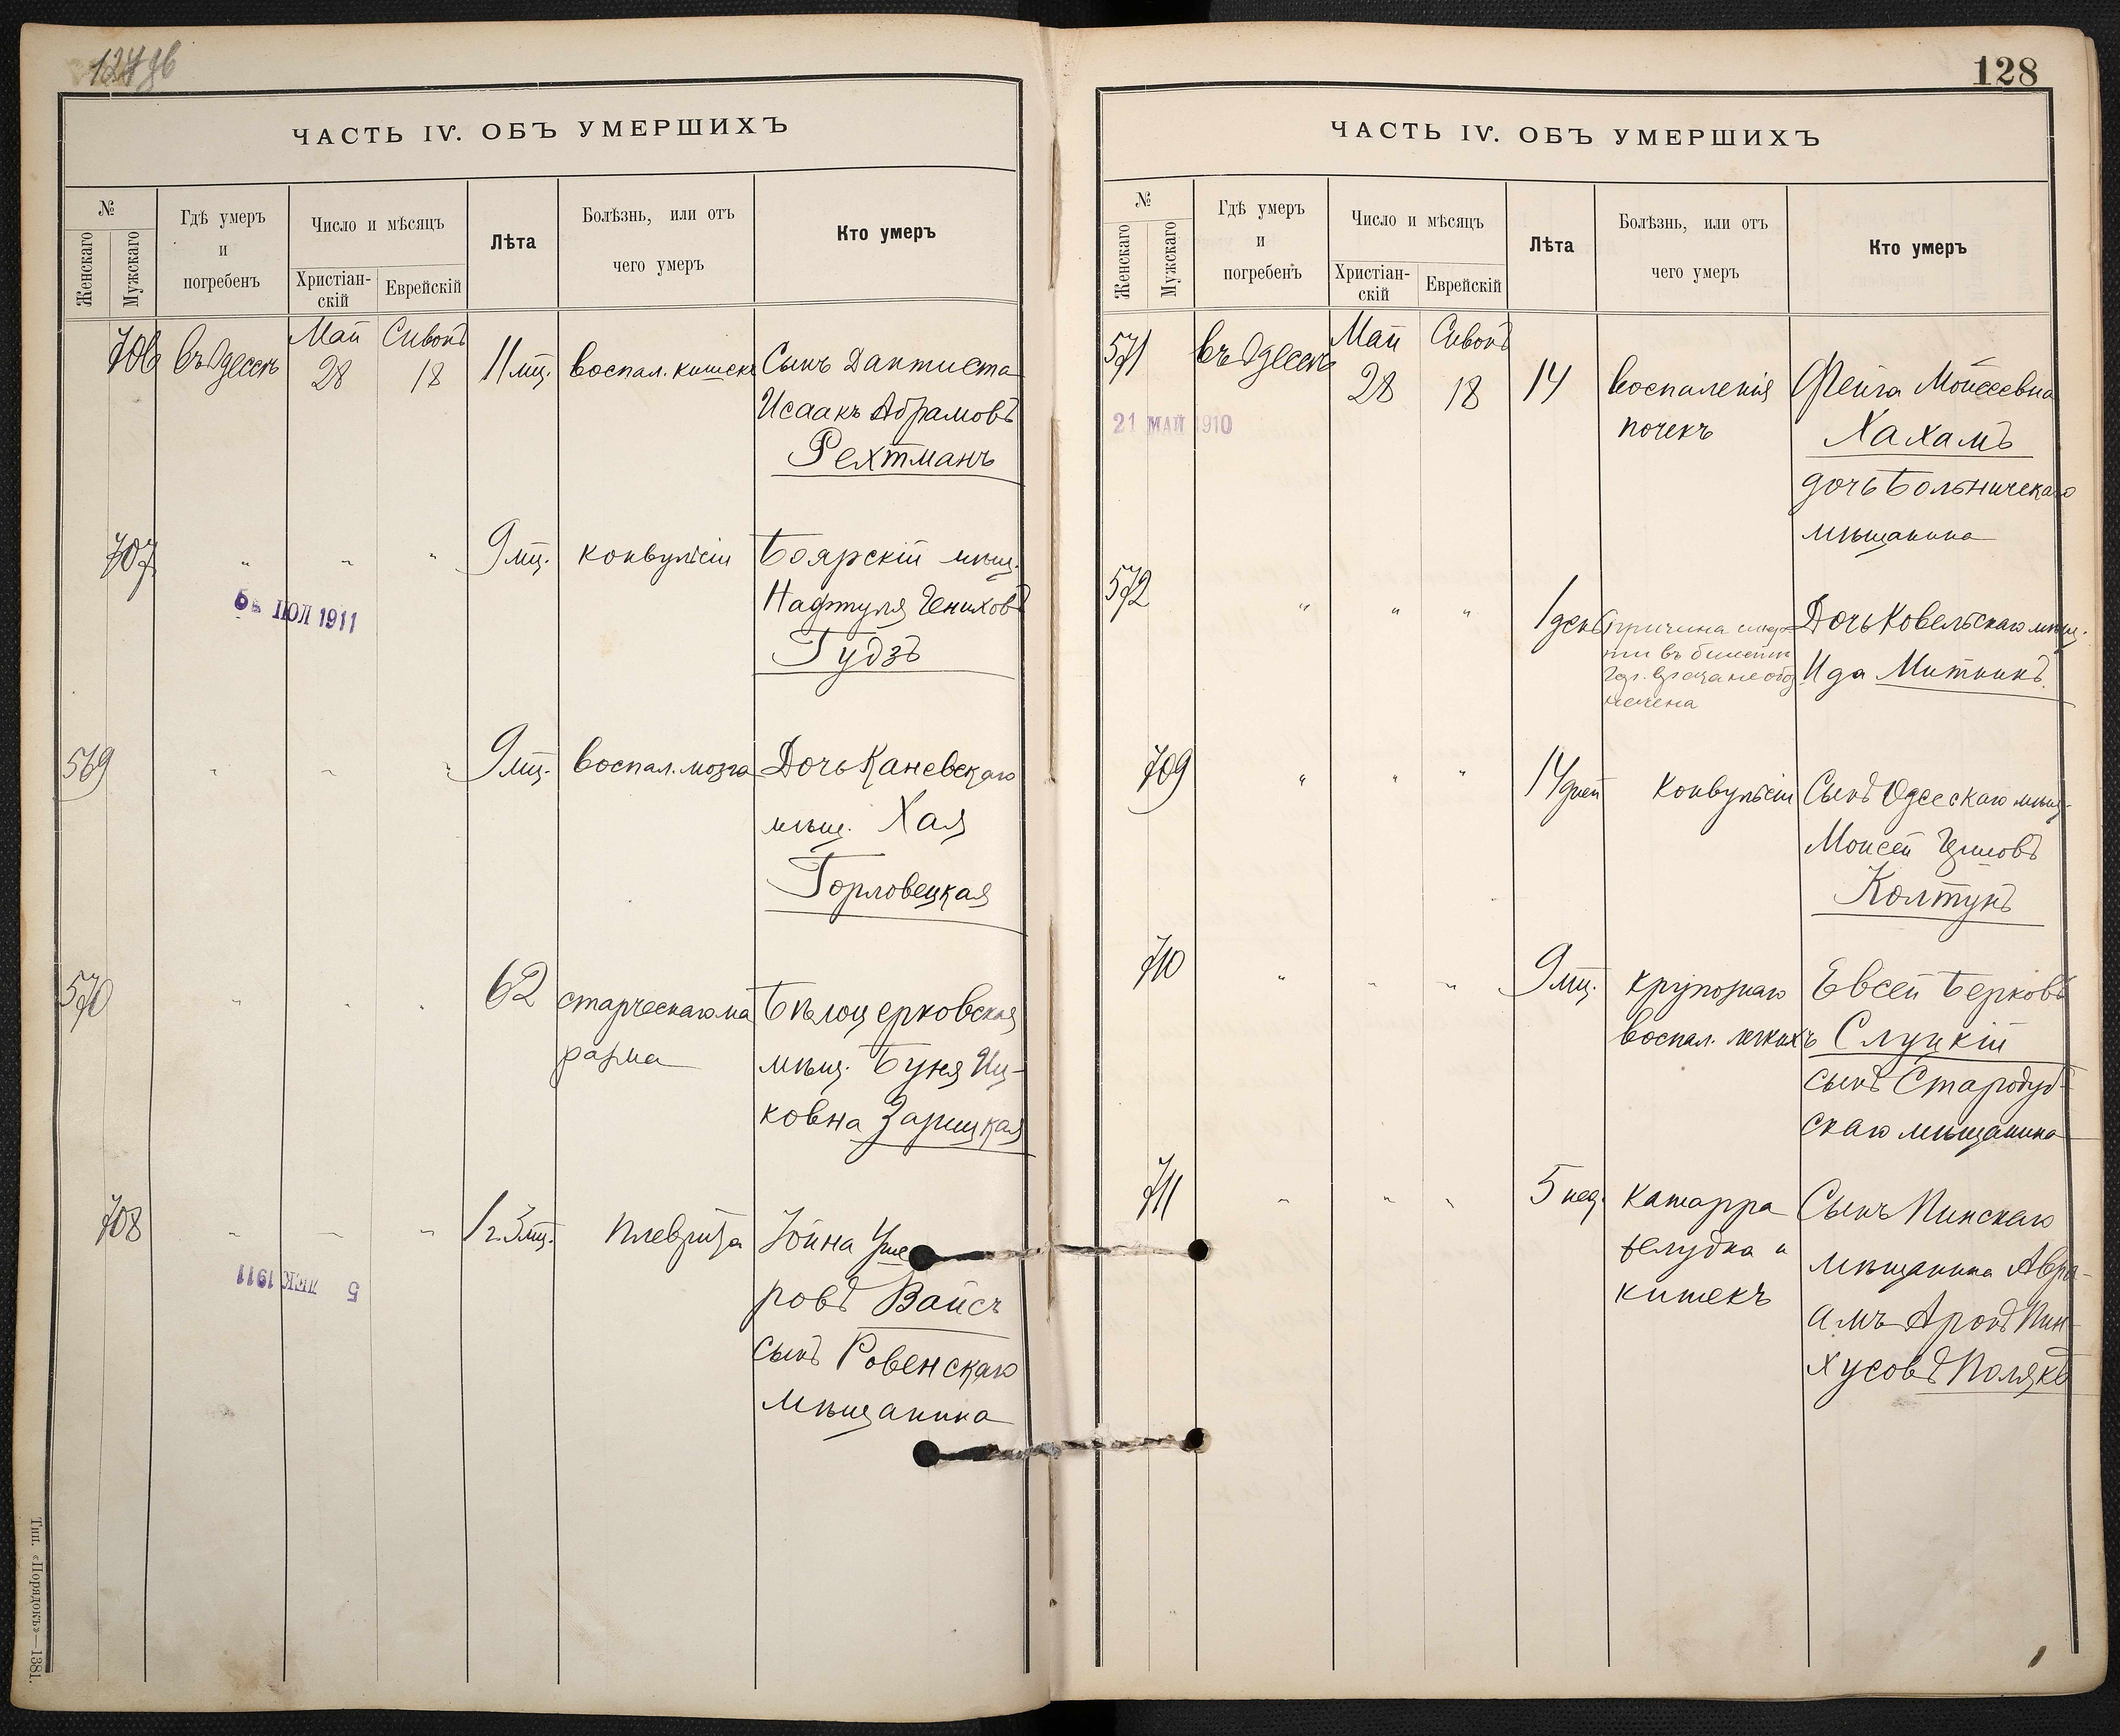 127 об
ЧАСТЬ IV. ОБЪ УМЕРШИХЪ
№
Женскаго
Мужскаго
Гдѣ умеръ
и
погребенъ
Число и мѣсяцъ
Христіан-
скій
Еврейскій
Лѣта
Болѣзнь, или отъ
чего умеръ
Кто умеръ
706 въ Одессѣ Май 28 Сивонъ 18 11 мц. воспал. кишекъ Сынъ Дантиста
Исаакъ Абрамовъ
Рехтманъ
707 " " " 9 мц. конвульсіи Боярскій мѣщ.
Нафтуля Гениховъ
Гудзъ
5 ІЮЛ 1911
569 " " " 9 мц. воспал. мозга Дочь Каневскаго
мѣщ. Хая
Горловецкая
570 " " " 62 старческаго ма
разма
Бѣлоцерковская
мѣщ. Буня Иц-
ковна Зарицкая
708 " " " 1 г. 3 мц. плеврита Іойна Уше
ровъ Вайсъ
сынъ Ровенскаго
мѣщанина
5 ДЕК 1911
Тип. «Порядокъ»—1381.
128
ЧАСТЬ IV. ОБЪ УМЕРШИХЪ
№
Женскаго
Мужскаго
Гдѣ умеръ
и
погребенъ
Число и мѣсяцъ
Христіан-
скій
Еврейскій
Лѣта
Болѣзнь, или отъ
чего умеръ
Кто умеръ
571 въ Одессѣ Май 28 Сивонъ 18 14 воспаленія
почекъ
Фейга Мойсеевна
Хахамъ
дочь Больничскаго
мѣщанина
21 МАЙ 1910
572 " " " 1 день причина смер-
ти въ билетѣ
Гор. врача не обоз
начена
Дочь Ковельскаго мѣщ.
Ида Митникъ
709 " " " 14 дней конвульсіи Сынъ Одесскаго мѣщ.
Моисей
Колтунъ
710 " " " 9 мц. крупознаго
воспал. легкихъ
Евсей Берковъ
Слуцкій
сынъ Стародуб-
скаго мѣщанина
711 " " " 5 нед. катарра
желудка и
кишекъ
Сынъ Пинскаго
мѣщанина Авра-
амъ Аронъ Пин-
хусовъ Полякъ